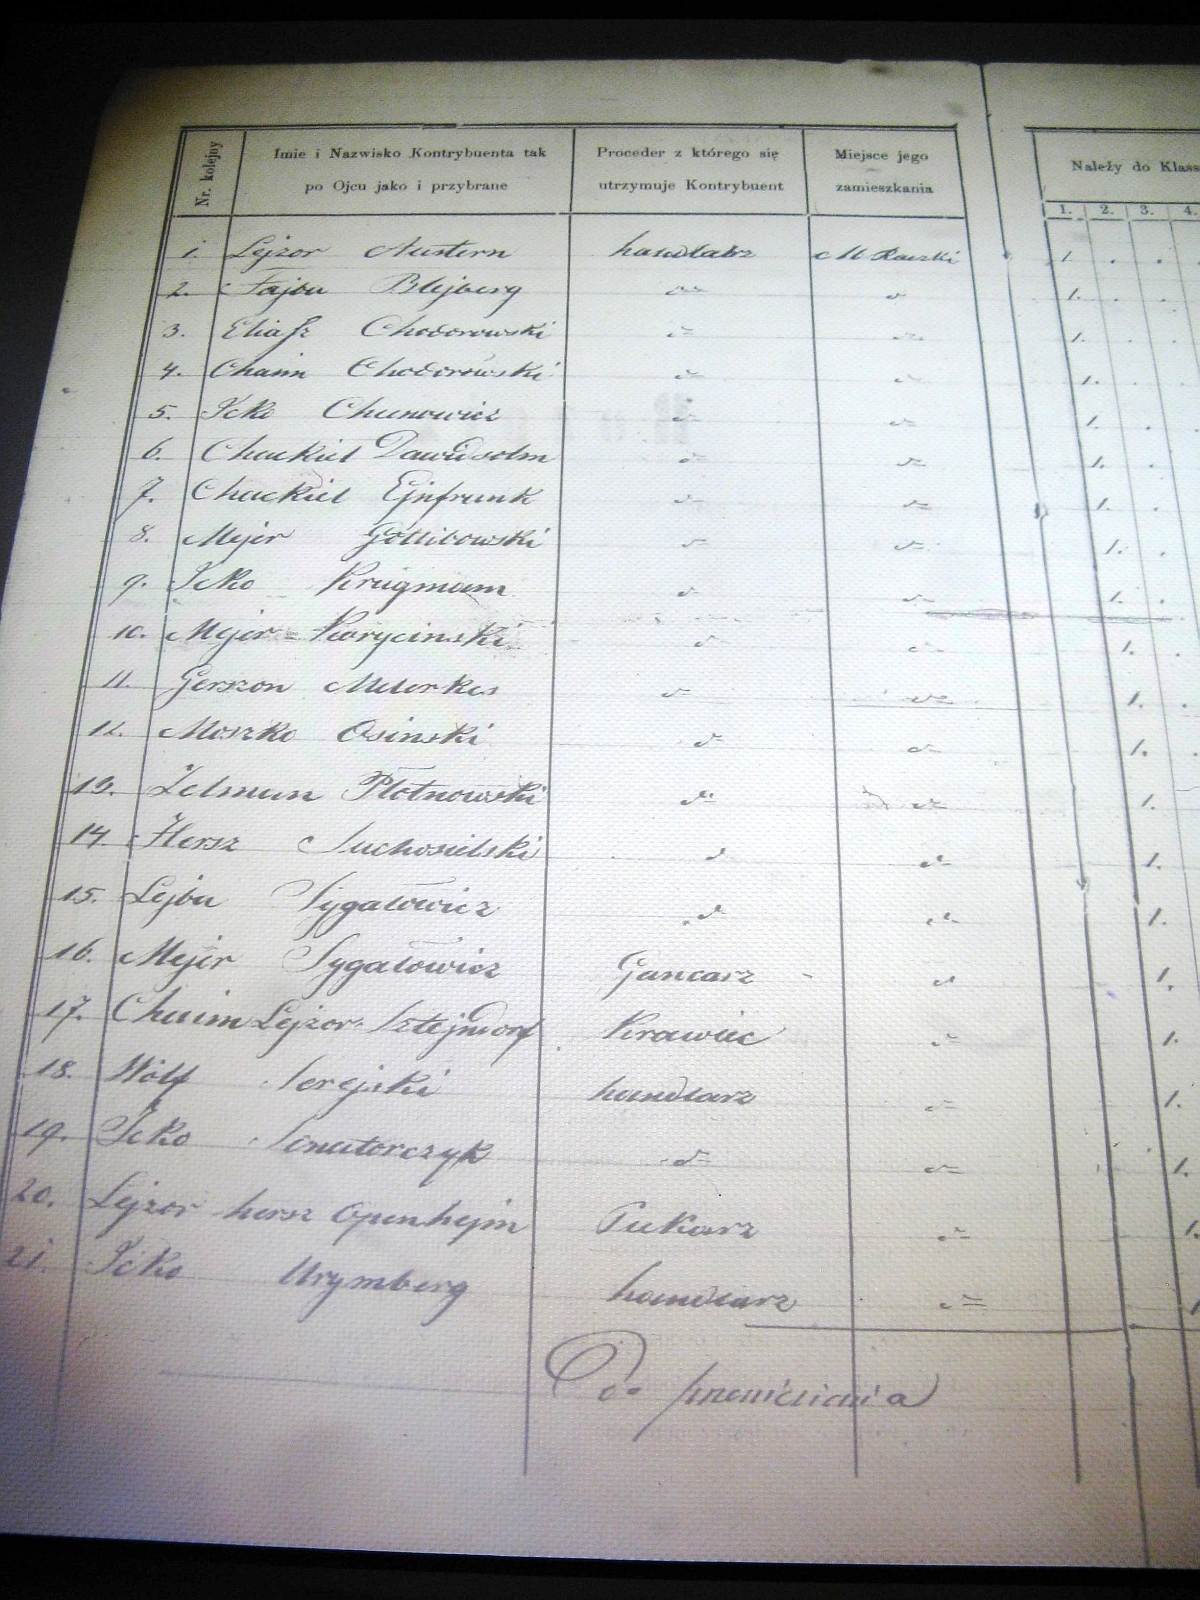 Nr. kolejny
Imie i Nazwisko Kontrybuenta tak po Ojcu jako i przybrane
Proceder z którego się utrzymuje Kontrybuent
Miejsce jego zamieszkania
Należy do Klass
1. 2. 3. 4.
1. Lejzor Austern handlarz M Raczki 1.
2. Fajbu Blejberg 1.
3. Eliasz Chodorowski 1.
4. Chaim Chodorowski 1.
5. Icko Chunowicz 1.
6. Chackiel Dawidsohn 1.
7. Chackiel Ejnfrank 1.
8. Mejer Gotlibowski 1.
9. Icko Krugmann 1.
10. Mejer Korycinski 1.
11. Gerszon 1.
12. Moszko Osinski 1.
13. Zelman Płotnowski 1.
14. Hersz Suchosielski 1.
15. Lejba Sygałowicz 1.
16. Mejer Sygałowicz Gancarz 1.
17. Chaim Lejzor Sztejndorf Krawiec 1.
18. Wolf Serejski handlarz 1.
19. Icko Senatorczyk 1.
20. Lejzor hersz Openhejm Piekarz 1.
21. Icko Urymberg handlarz 1
Do przeniesienia